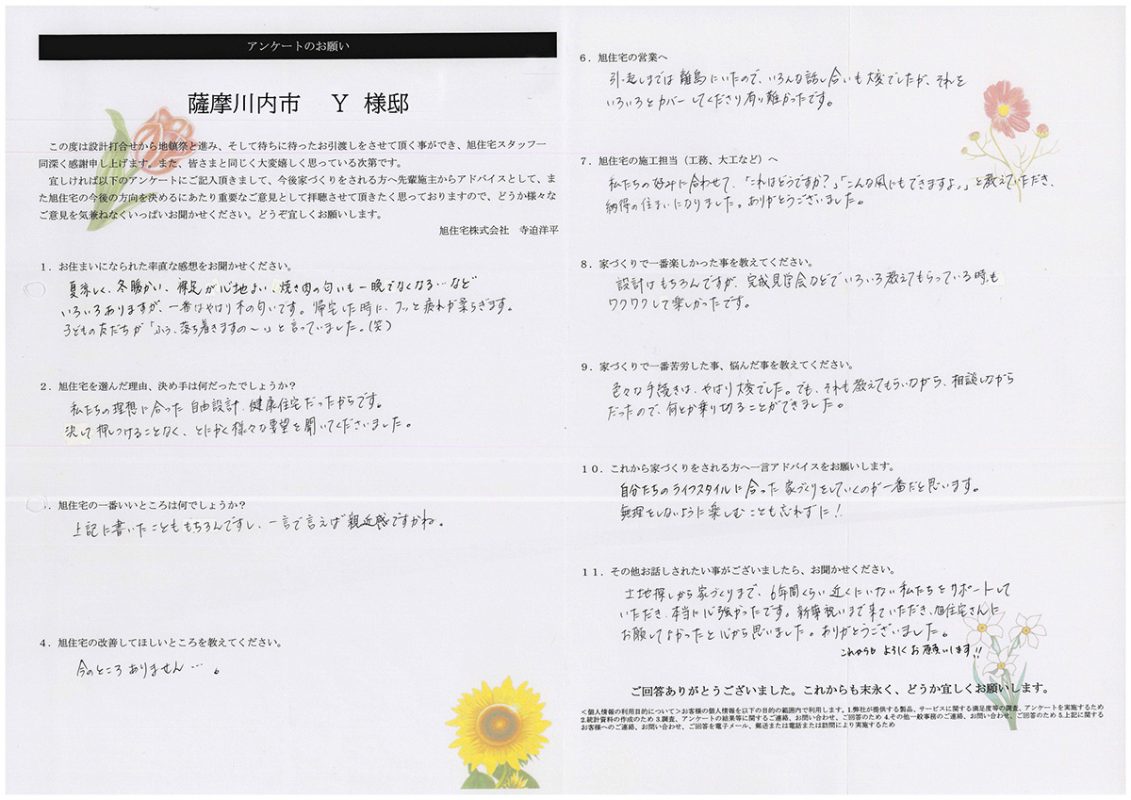 アンケートのお願い
薩摩川内市　Y 様邸
この度は設計打合せから地鎮祭と進み、そして待ちに待ったお引渡しをさせて頂く事ができ、旭住宅スタッフ一
同深く感謝申し上げます。また、皆さまと同じく大変嬉しく思っている次第です。
宜しければ以下のアンケートにご記入頂きまして、今後家づくりをされる方へ先輩施主からアドバイスとして、ま
た旭住宅の今後の方向を決めるにあたり重要なご意見として拝聴させて頂きたく思っておりますので、どうか様々な
ご意見を気兼ねなくいっぱいお聞かせください。どうぞ宜しくお願いします。
旭住宅株式会社　寺迫洋平
１．お住まいになられた率直な感想をお聞かせください。
夏涼しく、冬暖かい、裸足が心地よい、焼き肉の匂いも一晩でなくなる…など
いろいろありますが、一番はやはり木の匂いです。帰宅した時に、フッと疲れが柔らぎます。
子どもの友だちが「ふぅ、落ち着きますの～」と言っていました。(笑)
２．旭住宅を選んだ理由、決め手は何だったでしょうか？
私たちの理想に合った自由設計、健康住宅だったからです。
決して押しつけることなく、とにかく様々な要望を聞いてくださいました。
．旭住宅の一番いいところは何でしょうか？
上記に書いたことももちろんですし、一言で言えば親近感ですかね。
４．旭住宅の改善してほしいところを教えてください。
今のところありません…。
６．旭住宅の営業へ
引っ越しまでは離島にいたので、いろんな話し合いも大変でしたが、それを
いろいろとカバーしてくださり有り難かったです。
７．旭住宅の施工担当（工務、大工など）へ
私たちの好みに合わせて、「これはどうですか？」「こんな風にもできますよ。」と教えていただき、
納得の住まいになりました。ありがとうございました。
８．家づくりで一番楽しかった事を教えてください。
設計はもちろんですが、完成見学会などでいろいろ教えてもらっている時も
ワクワクして楽しかったです。
９．家づくりで一番苦労した事、悩んだ事を教えてください。
色々な手続きは、やはり大変でした。でも、それも教えてもらいながら、相談しながら
だったので、何とか乗り切ることができました。
１０．これから家づくりをされる方へ一言アドバイスをお願いします。
自分たちのライフスタイルに合った家づくりをしていくのが一番だと思います。
無理をしないように楽しむことも忘れずに！
１１．その他お話しされたい事がございましたら、お聞かせください。
土地探しから家づくりまで、6年間くらい近くにいない私たちをサポートして
いただき、本当に心強かったです。新築祝いまで来ていただき、旭住宅さんに
お願いしてよかったと心から思いました。ありがとうございました。
これからも よろしくお願いします!!
ご回答ありがとうございました。これからも末永く、どうか宜しくお願いします。
＜個人情報の利用目的について＞お客様の個人情報を以下の目的の範囲内で利用します。1.弊社が提供する製品、サービスに関する満足度等の調査、アンケートを実施するため
2.統計資料の作成のため 3.調査、アンケートの結果等に関するご連絡、お問い合わせ、ご回答のため 4.その他一般事務のご連絡、お問い合わせ、ご回答のため 5.上記に関する
お客様へのご連絡、お問い合わせ、ご回答を電子メール、郵送または電話または訪問により実施するため